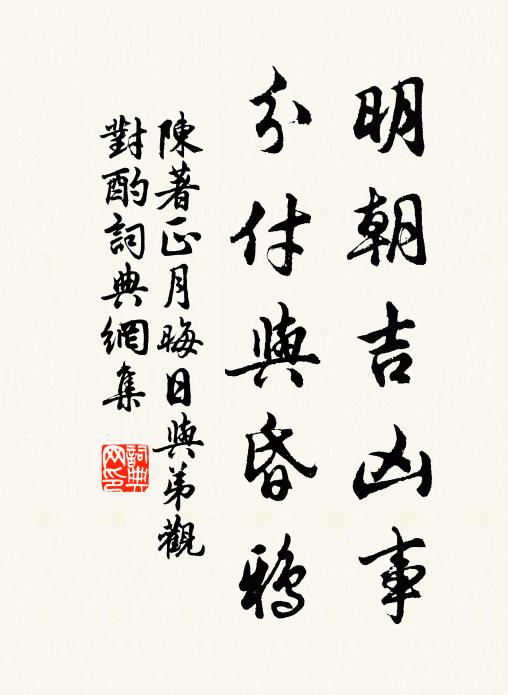 明朝吉凶事
分付與昏鴉
陳著正月晦日與弟觀
對酌詞典網集
詞典
网印